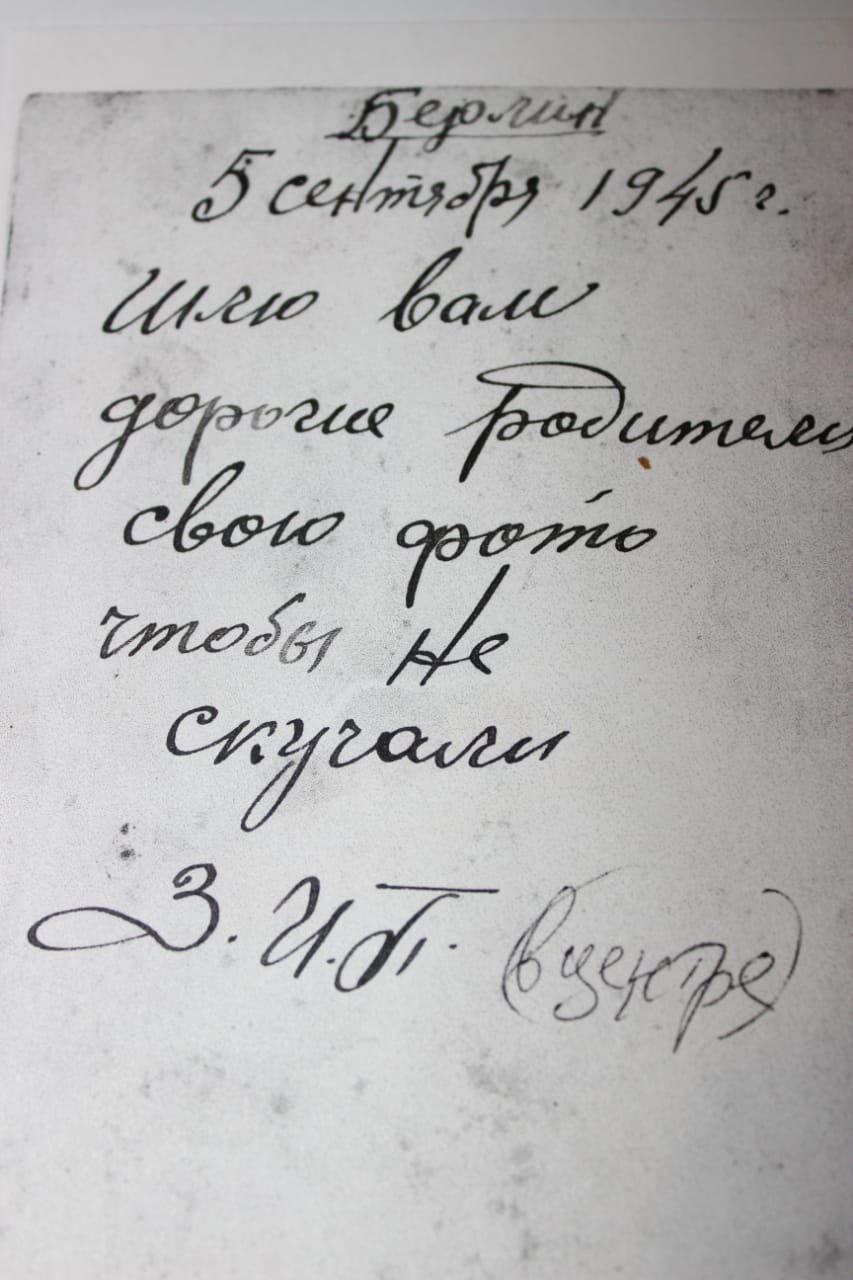 Берлин
5 сентября 1945 г.
Шлю вам
дорогие родители
свою фото
чтобы не
скучали
З. И. П. (в центре)